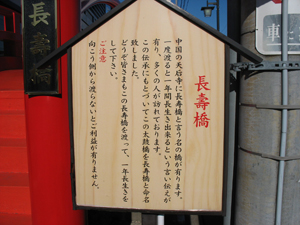 長壽橋
中国の天后寺に長寿橋と言う名の橋が有ります。
一度渡ると一年間長生き出来るという言い伝えが
有り、多くの人が訪れております。
この伝承にもとづいてこの太鼓橋を長寿橋と命名
致しました。
どうぞ皆さまもこの長寿橋を渡って、一年長生きを
して下さい。
ご注意
向こう側から渡らないとご利益が有りません。
長壽橋
車